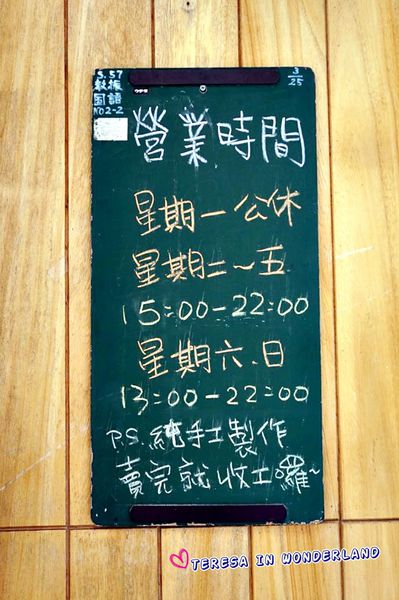 S.57
教振
国語
NO2-2
3/25
營業時間
星期一公休
星期二~五
15:00-22:00
星期六.日
13:00-22:00
P.S.純手工製作
賣完就收工囉~
TERESA IN WONDERLAND